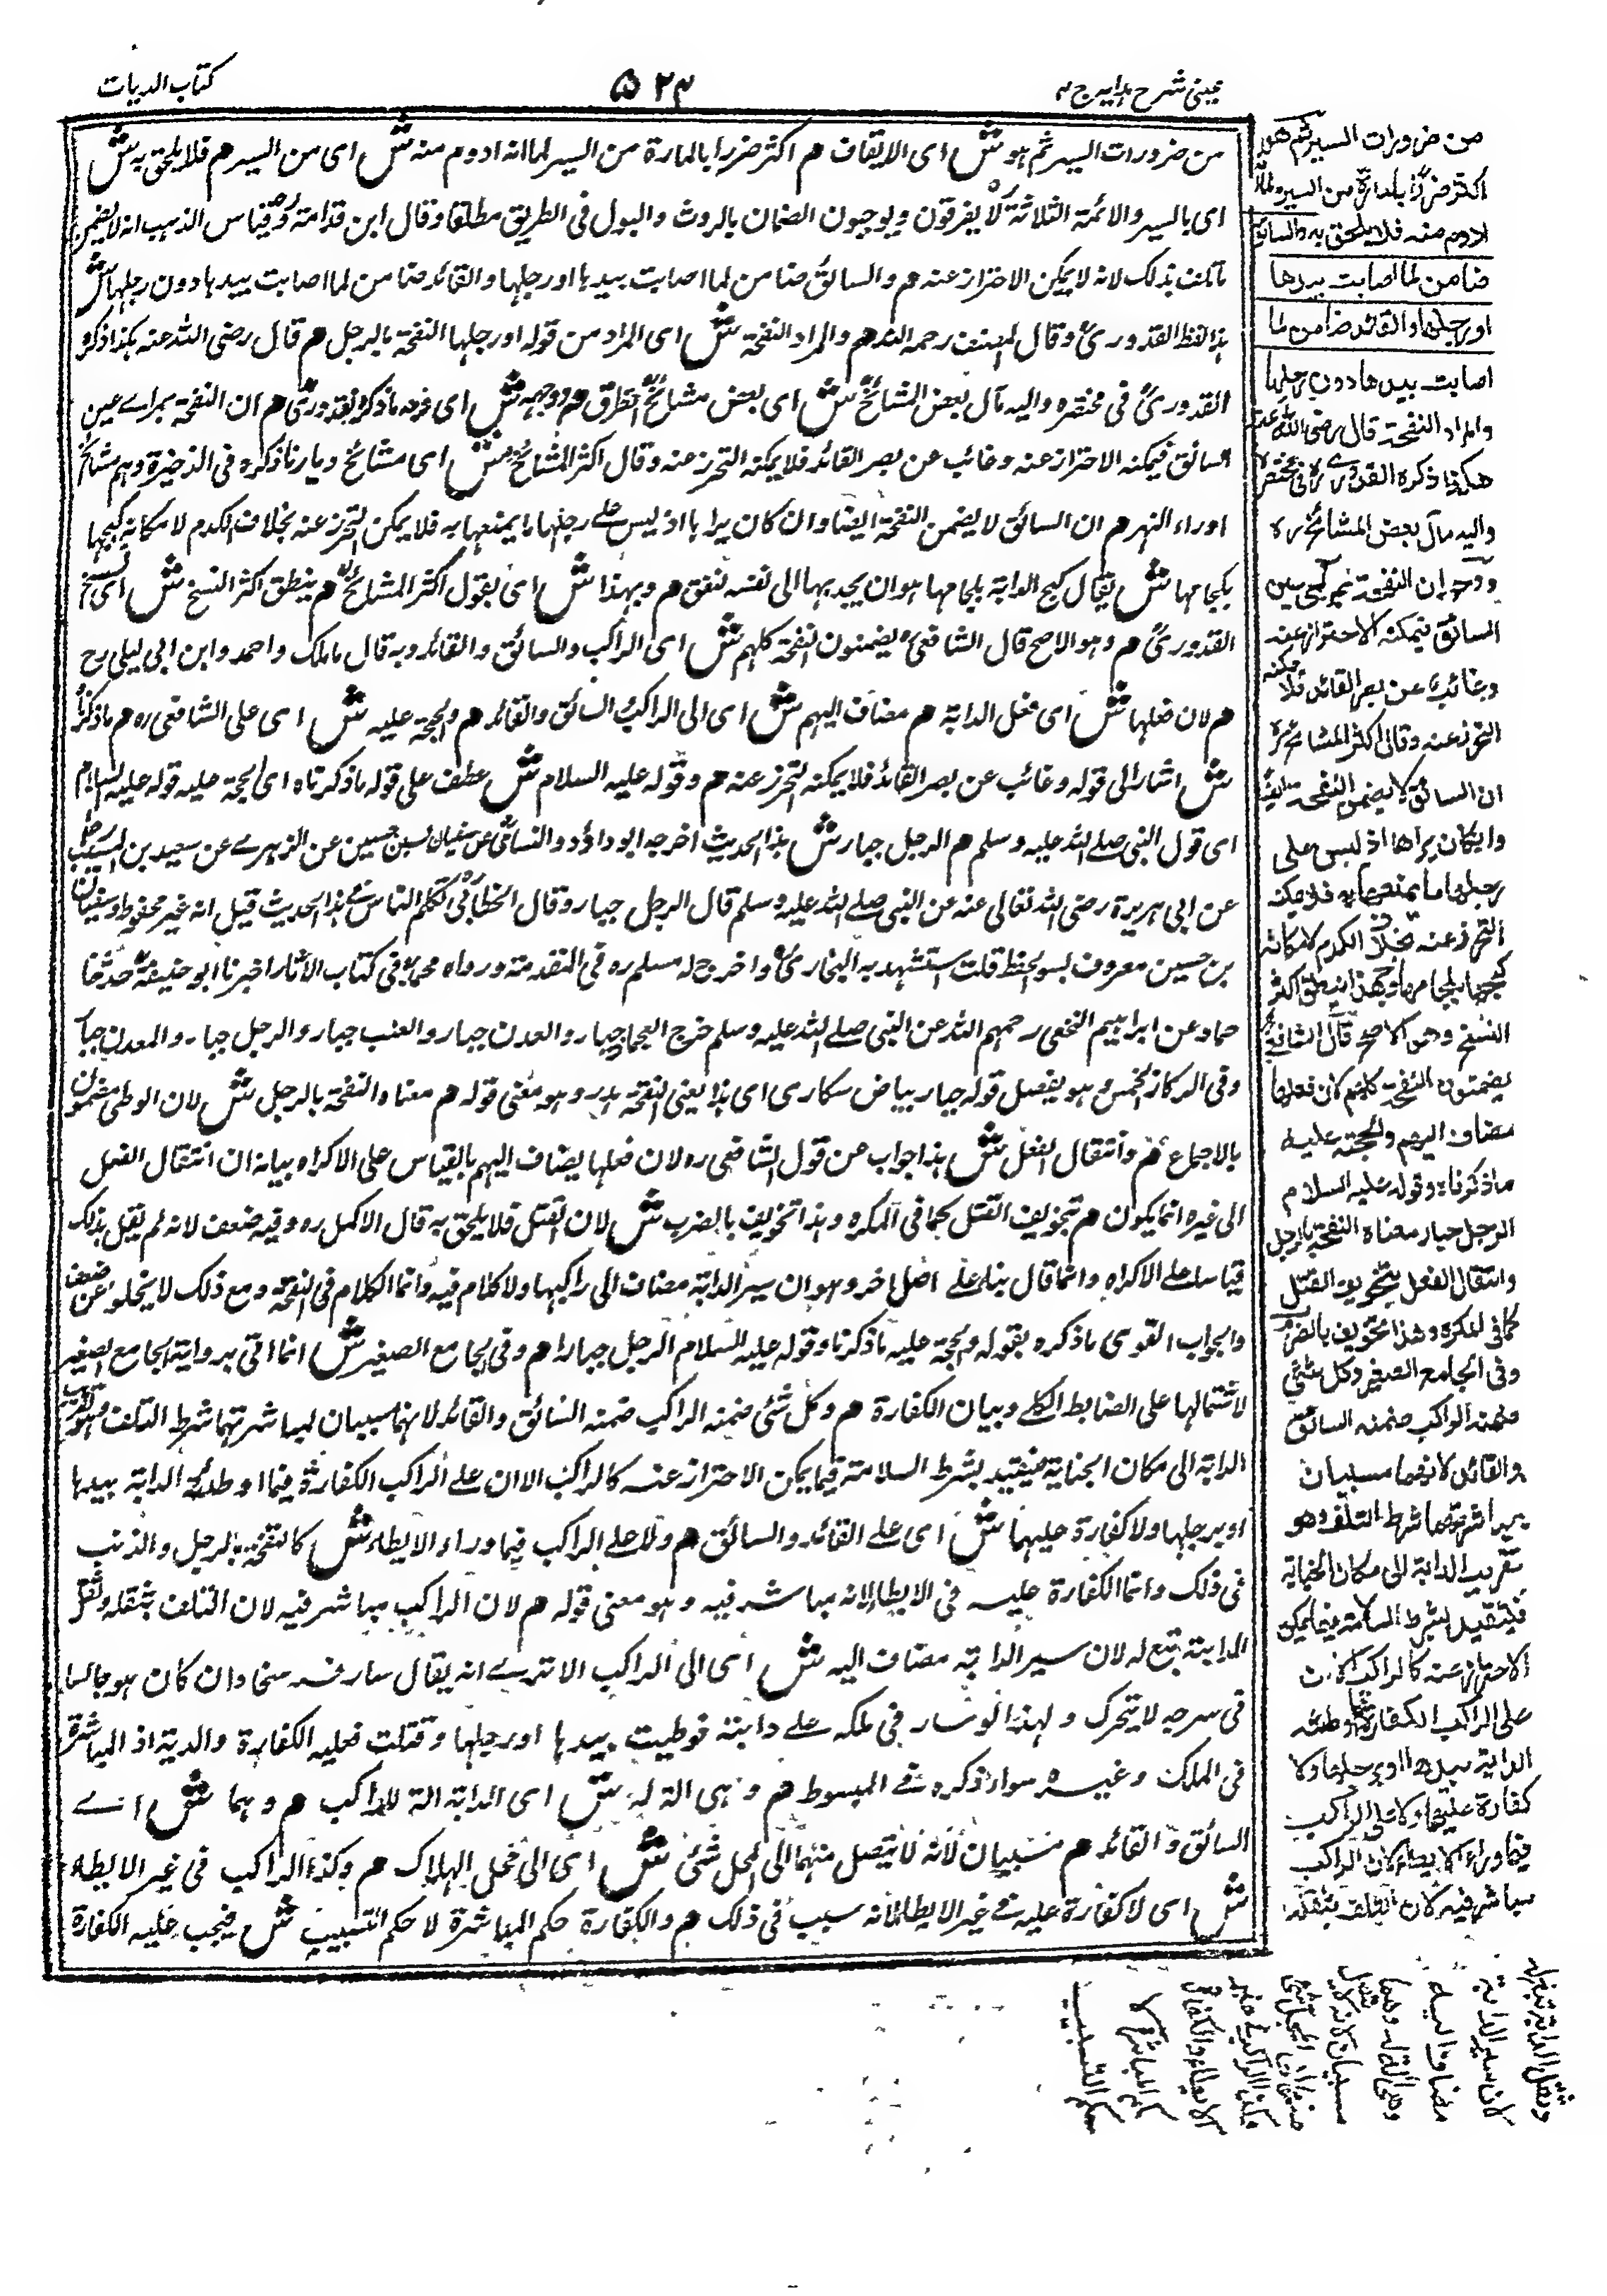 عینی شرح ہدایہ ج ۴
۵۲۳
كتاب الديات
من ضرورات السير ثم هو ش اى الايقاف هم اكثر ضررا بالمارة من السير لما انه ادوم منه ش اى من السير هم فلا يلحق به ش
اى بالسير والائمة الثلاثة لا يفرقون ويوجبون الضمان بالروث والبول فى الطريق مطلقا وقال ابن قدامة وقياس المذهب انه لا يضمن
ما تلف بذلك لانه لا يمكن الاحتراز عنه هم والسائق ضامن لما اصابت بيدها او رجلها والقائد ضامن لما اصابت بيدها دون رجلها ش
هذا لفظ القدورى وقال المصنف رحمه الله هم والمراد النفحة ش اى المراد من قوله او رجلها النفحة بالرجل هم قال رضى الله عنه هكذا ذكره
القدورى فى مختصره واليه مال بعض المشائخ ش اى بعض مشائخ العراق هم ووجهه ش اى وجه ما ذكره القدورى هم ان النفحة بمراى عين
السائق فيمكنه الاحتراز عنه وغائب عن بصر القائد فلا يمكنه التحرز عنه وقال اكثر المشائخ ش اى مشائخ ديارنا ذكره فى الذخيرة وهم مشائخ
ماوراء النهر هم ان السائق لا يضمن النفحة ايضا وان كان يراها اذ ليس على رجلها ما يمنعها به فلا يمكن التحرز عنه بخلاف الكدم لامكانه كبحها
بلجامها ش يقال كبح الدابة بلجامها هو ان يجذبها الى نفسه لتقف هم وبهذا ش اى بقول اكثر المشائخ هم ينطق اكثر النسخ ش اى نسخ
القدورى هم وهو الاصح قال الشافعى يضمنون النفحة كلهم ش اى الراكب والسائق والقائد وبه قال مالك واحمد وابن ابى ليلى رح
هم لان فعلها ش اى فعل الدابة هم مضاف اليهم ش اى الى الراكب والسائق والقائد هم والحجة عليه ش اى على الشافعى ره هم ما ذكرناه
ش اشار الى قوله وغائب عن بصر القائد فلا يمكنه التحرز عنه هم وقوله عليه السلام ش عطف على قوله ما ذكرناه اى الحجة عليه قوله عليه السلام
اى قول النبى صلى الله عليه وسلم هم الرجل جبار ش هذا الحديث اخرجه ابو داؤد والنسائى عن سفيان بن حسين عن الزهرى عن سعيد بن المسيب
عن ابى هريرة رضى الله تعالى عنه عن النبى صلى الله عليه وسلم قال الرجل جبار وقال الخطابى تكلم الناس فى هذا الحديث قيل انه غير محفوظ وسفيان
بن حسين معروف بسوء الحفظ قلت استشهد به البخارى واخرج له مسلم ره فى المقدمة ورواه محمد فى كتاب الاثار اخبرنا ابو حنيفة حدثنا
حماد عن ابراهيم النخعى رحمهم الله عن النبى صلى الله عليه وسلم جرح العجماء جبار والمعدن جبار والرجل جبار
وفى الركاز الخمس وهو يفصل قوله جبار اى هذا يعنى النفحة هدر وهو معنى قوله هم معناه النفحة بالرجل ش لان الوطى مضمون
بالاجماع هم وانتقال الفعل ش هذا جواب عن قول الشافعى ره لان فعلها يضاف اليهم بالقياس على الاكراه بيانه ان انتقال الفعل
الى غيره انما يكون هم بتخويف القتل كما فى المكره وهذا تخويف بالضرب ش لان القتل فلا يلحق به قال الاكمل ره وفيه ضعف لانه لم يقل بذلك
قياسا على الاكراه وانما قال بناء على اصل اخر وهو ان سير الدابة مضاف الى راكبها ولا كلام فيه وانما الكلام فى النفحة ومع ذلك لا يخلو عن ضعف
والجواب القوى ما ذكره بقوله والحجة عليه ما ذكرنا وقوله عليه السلام الرجل جبار هم وفى الجامع الصغير ش انما اتى برواية الجامع الصغير
لاشتمالها على الضابط الكلى وبيان الكفارة هم وكل شئ ضمنه الراكب ضمنه السائق والقائد لانهما مسببان لمباشرتهما شرط التلف وهو تقريب
الدابة الى مكان الجناية فيتقيد بشرط السلامة فيما يمكن الاحتراز عنه كالراكب الا ان على الراكب الكفارة فيما اوطئته الدابة بيدها
او برجلها ولا كفارة عليهما ش اى على القائد والسائق هم ولا على الراكب فيما وراء الايطاء ش كالنفحة بالرجل والذنب
فى ذلك وانما الكفارة عليه فى الايطاء لانه مباشر فيه وهو معنى قوله هم لان الراكب مباشر فيه لان التلف بثقله وثقل
الدابة تبع له لان سير الدابة مضاف اليه ش اى الى الراكب الا ترى انه يقال سار فرسخا وان كان هو جالسا
فى سرجه لا يتحرك ولهذا لو سار فى ملكه على دابته فوطيت بيدها او رجلها وقتلت فعليه الكفارة والدية اذ المباشرة
فى الملك وغيره سواء ذكره فى المبسوط هم وهى الة له ش اى الدابة الة للراكب هم وهما ش اى
السائق والقائد هم مسببان لانه لا يتصل منهما الى المحل شئ ش اى الى محل الهلاك هم وكذا الراكب فى غير الايطاء
ش اى لا كفارة عليه فى غير الايطاء لانه سبب فى ذلك هم والكفارة حكم المباشرة لا حكم التسبيب ش فيجب عليه الكفارة
من ضرورات السير ثم هو
اكثر ضررا بالمارة من السير لما انه
ادوم منه فلا يلحق به والسائق
ضامن لما اصابت بيدها
او رجلها والقائد ضامن لما
اصابت بيدها دون رجلها
والمراد النفحة قال رضى الله عنه
هكذا ذكره القدورى فى مختصره
واليه مال بعض المشائخ ره
ووجهه ان النفحة بمراى عين
السائق فيمكنه الاحتراز عنه
وغائب عن بصر القائد فلا يمكنه
التحرز عنه وقال اكثر المشائخ ره
ان السائق لا يضمن النفحة ايضا
وان كان يراها اذ ليس على
رجلها ما يمنعها به فلا يمكنه
التحرز عنه بخلاف الكدم لامكانه
كبحها بلجامها وبهذا ينطق اكثر
النسخ وهو الاصح قال الشافعى
يضمنون النفحة كلهم لان فعلها
مضاف اليهم والحجة عليه
ما ذكرناه وقوله عليه السلام
الرجل جبار معناه النفحة بالرجل
وانتقال الفعل بتخويف القتل
كما فى المكره وهذا تخويف بالضرب
وفى الجامع الصغير وكل شئ
ضمنه الراكب ضمنه السائق
والقائد لانهما مسببان
بمباشرتهما شرط التلف وهو
تقريب الدابة الى مكان الجناية
فيتقيد بشرط السلامة فيما يمكن
الاحتراز عنه كالراكب الا ان
على الراكب الكفارة فيما اوطئته
الدابة بيدها او برجلها ولا
كفارة عليهما ولا على الراكب
فيما وراء الايطاء لان الراكب
مباشر فيه لان التلف بثقله
وثقل الدابة تبع له
لان سير الدابة
مضاف اليه
وهى الة له وهما
مسببان لانه لا يتصل
منهما الى المحل شئ
وكذا الراكب فى غير
الايطاء والكفارة
حكم المباشرة لا
حكم التسبيب